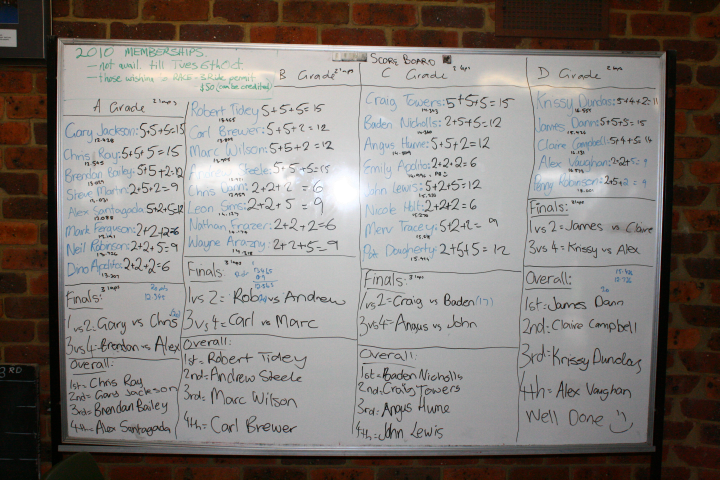 2010 MEMBERSHIPS.
- not avail. till Tues 6th Oct.
- those wishing to RACE - 3 Ride permit
$50 (can be credited)
SCORE BOARD
A Grade 2 laps
Gary Jackson: 5+5+5=15
Chris Ray: 5+5+5=15
Brendan Bailey: 5+5+2=12
Steve Martin: 2+5+2=9
Alex Santagada: 5+2+5=12
Mark Ferguson: 2+2+2=6
Neil Robinson: 2+2+5=9
Dino Apolito: 2+2+2=6
Finals: 3 laps
1 vs 2: Gary vs Chris
3 vs 4: Brendan vs Alex
Overall:
1st= Chris Ray
2nd= Gary Jackson
3rd= Brendan Bailey
4th= Alex Santagada
B Grade 2 laps
Robert Tidey: 5+5+5=15
Carl Brewer: 5+5+2=12
Marc Wilson: 5+5+2=12
Steele: 5+5+5=15
Chris Vann: 2+2+2=6
Leon Sims: 2+2+5=9
Nathan Frazer: 2+2+2=6
Wayne Ararzny: 2+2+5=9
Finals: 3 laps
1 vs 2= Rob vs Andrew
3 vs 4= Carl vs Marc
Overall:
1st= Robert Tidey
2nd= Andrew Steele
3rd= Marc Wilson
4th= Carl Brewer
C Grade 2 laps
Craig Towers: 5+5+5=15
Baden Nicholls: 2+5+5=12
Angus Hume: 5+5+2=12
Emily Apolito: 2+2+2=6
John Lewis: 5+2+5=12
Nicole Holt: 2+2+2=6
Merv Tracey: 5+2+2=9
Pat Daugherty: 2+5+5=12
Finals: 3 laps
1 vs 2= Craig vs Baden
3 vs 4= Angus vs John
Overall:
1st= Baden Nicholls
2nd= Craig Towers
3rd= Angus Hume
4th= John Lewis
D Grade 2 laps
Krissy Dundas: 5+4+2=11
James Dann: 5+5+5=15
Claire Campbell: 5+4+5=14
Alex Vaughan: 2+2+5=9
Penny Robinson: 2+5+2=9
Finals: 3 laps
1 vs 2= James vs Claire
3 vs 4= Krissy vs Alex
Overall:
1st= James Dann
2nd= Claire Campbell
3rd= Krissy Dundas
4th= Alex Vaughan
Well Done